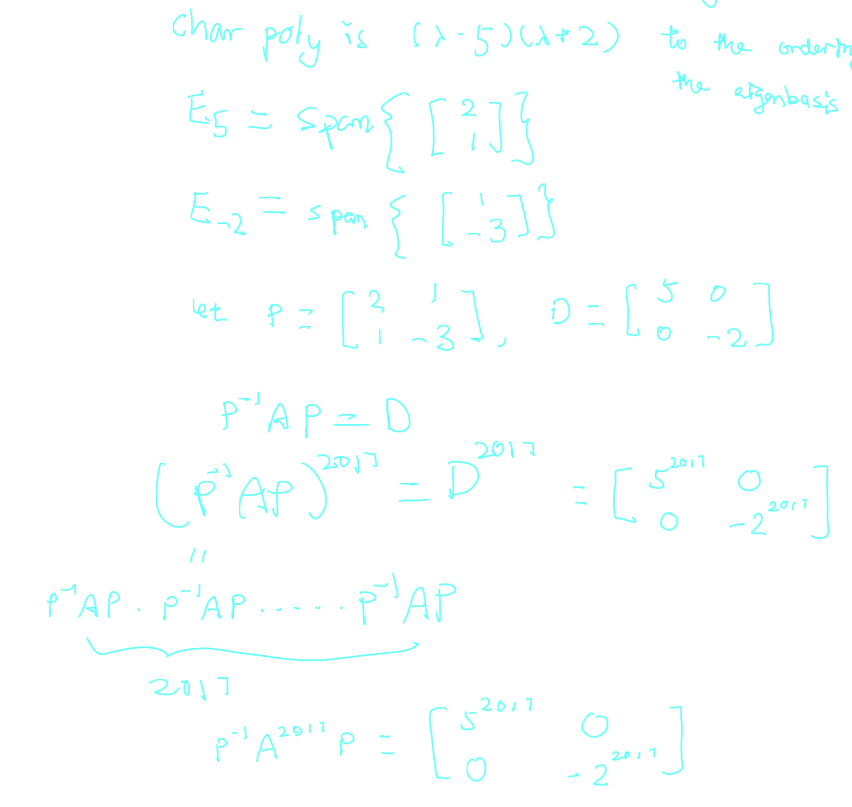 char poly is (λ-5)(λ+2) to the ordering
the eigenbasis
E₅ = span{[2 1]}
E₋₂ = span{[1 -3]}
let P = [2 1 1 -3], D = [5 0 0 -2]
P⁻¹AP = D
(P⁻¹AP)²⁰¹⁷ = D²⁰¹⁷ = [5²⁰¹⁷ 0 0 -2²⁰¹⁷]
"
P⁻¹AP · P⁻¹AP ····· P⁻¹AP
2017
P⁻¹A²⁰¹⁷P = [5²⁰¹⁷ 0 0 -2²⁰¹⁷]